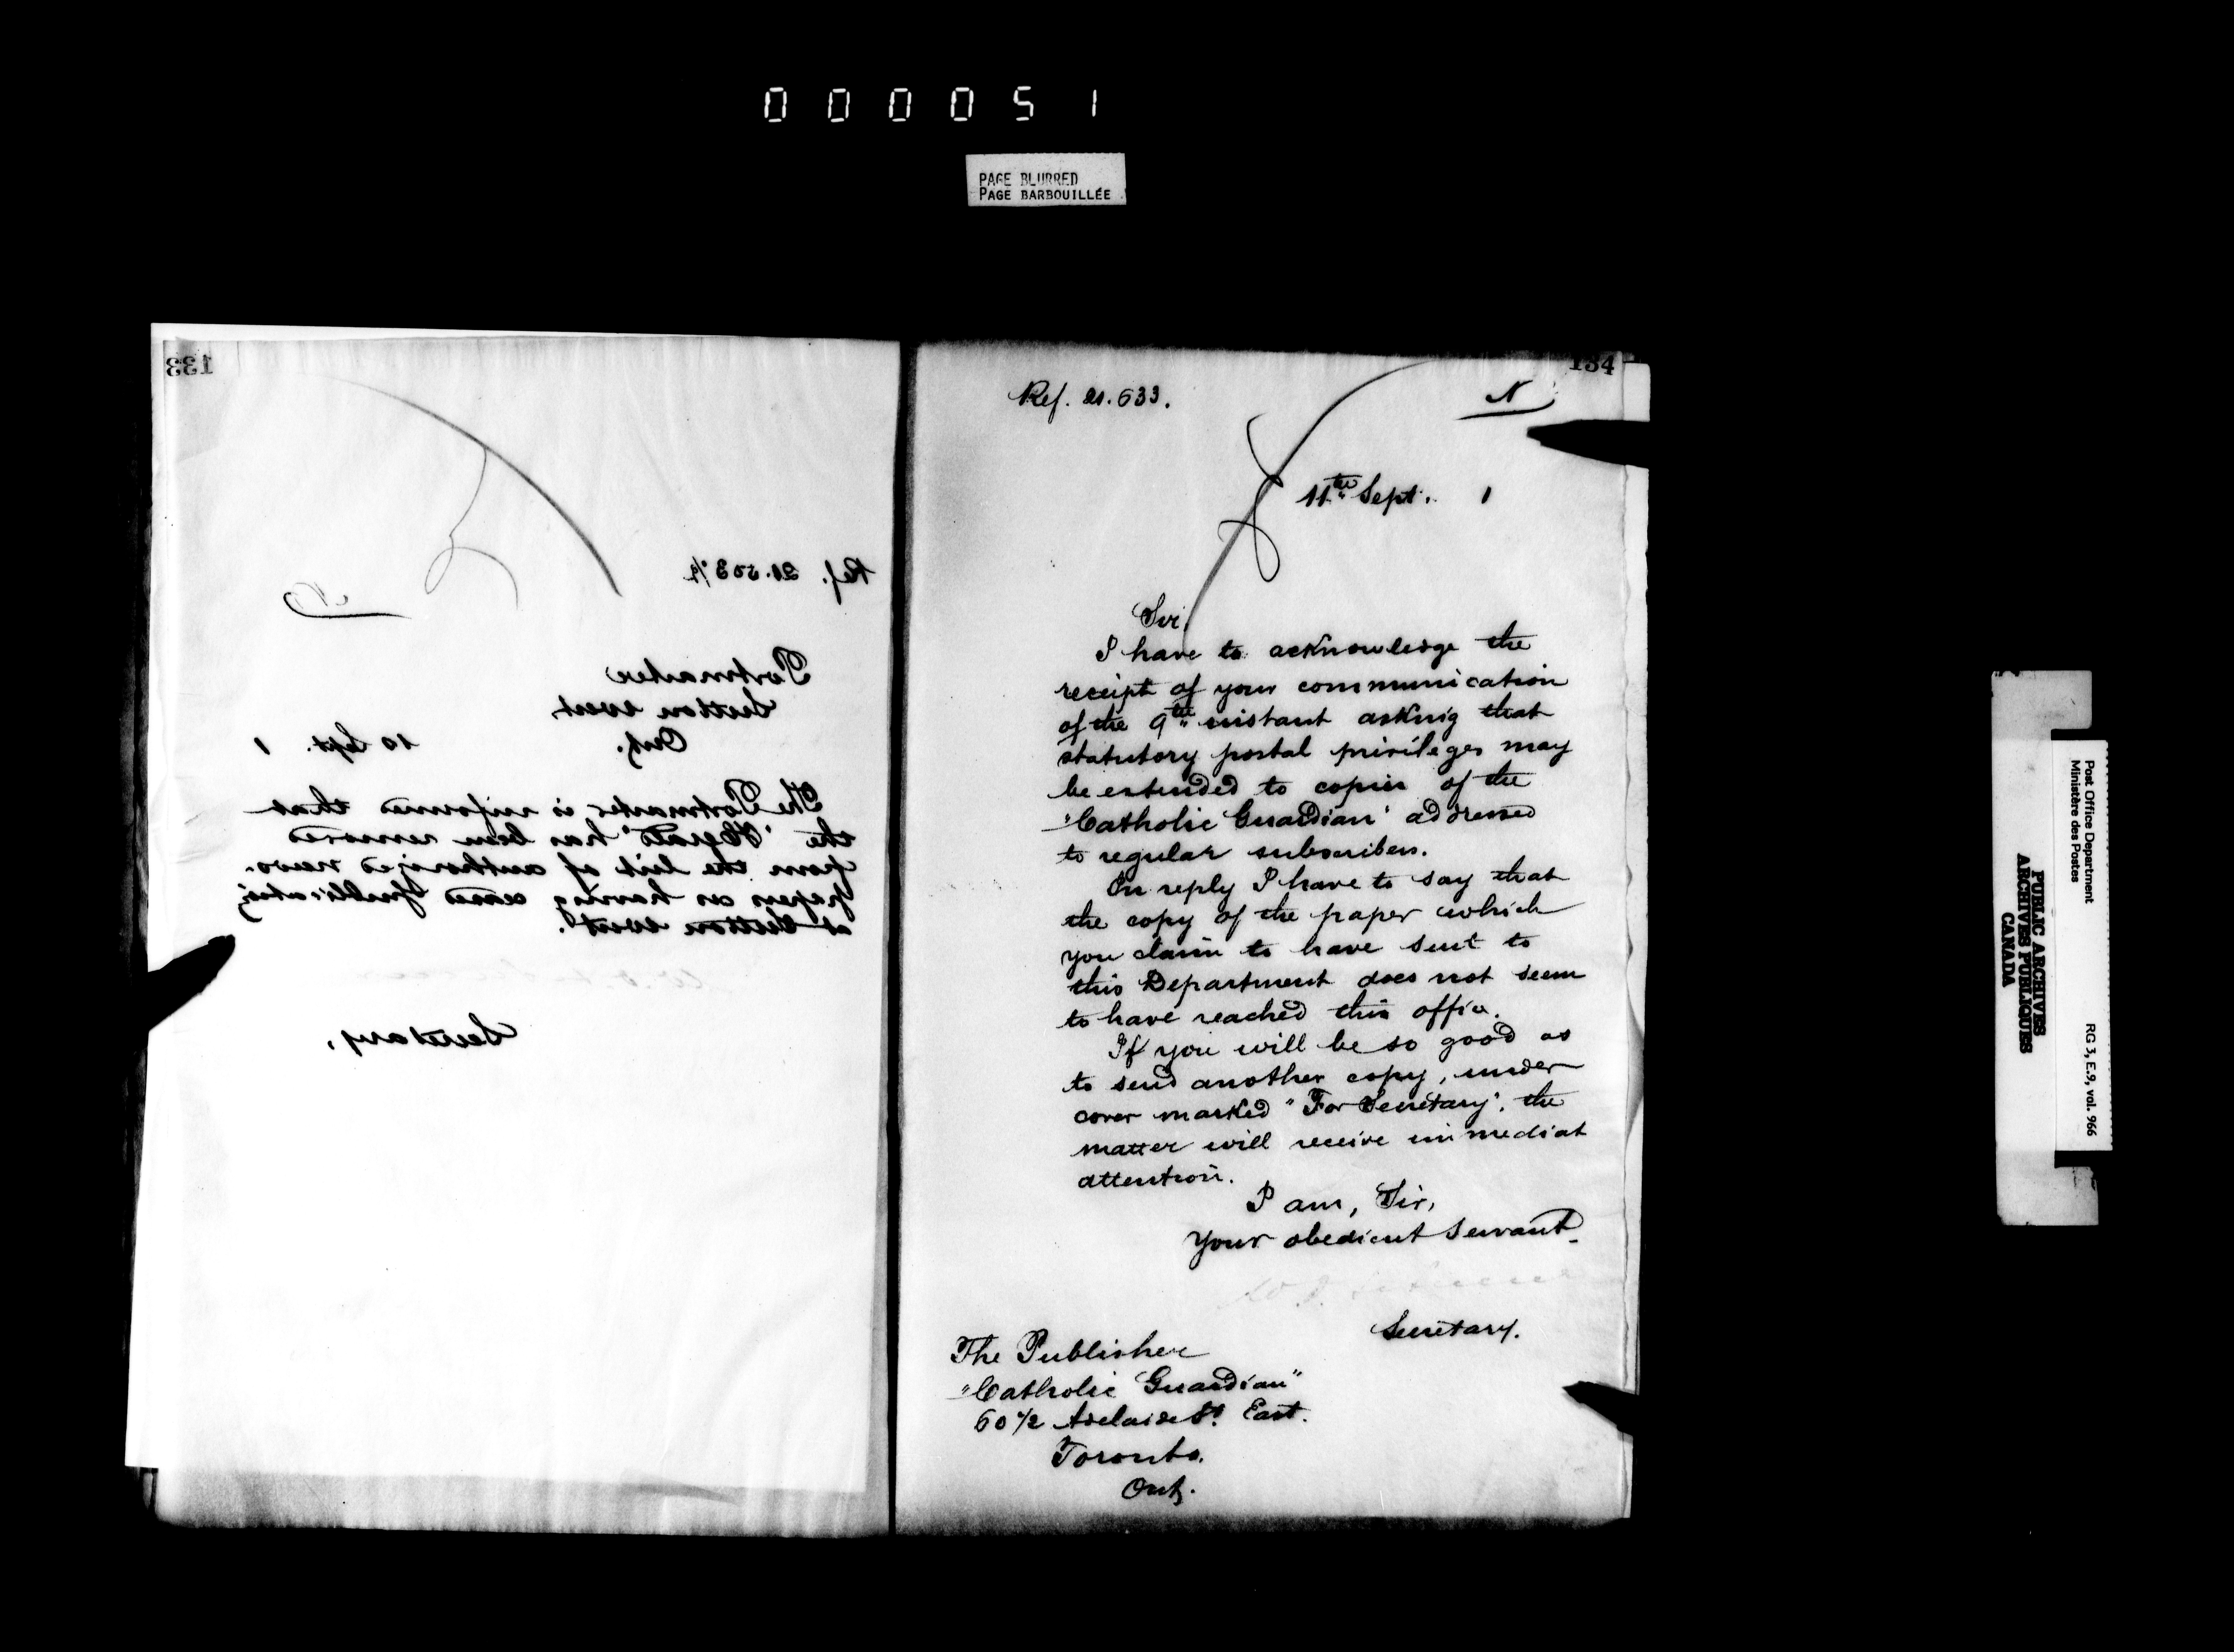 0 0 0 0 5 1
PAGE BLURRED
PAGE BARBOUILLÉE
133
Ref. 21.503 1/2
Postmaster
Sutton West
Ont.
10 Sept. 1
The Postmaster is informed that
the "Herald" has been removed
from the list of authorized news-
papers as having ceased publication
at Sutton West.
Secretary,
134
Ref. 21.633.
N
11th Sept. 1
Sir,
I have to acknowledge the
receipt of your communication
of the 9th instant asking that
statutory postal privileges may
be extended to copies of the
"Catholic Guardian" addressed
to regular subscribers.
In reply I have to say that
the copy of the paper which
you claim to have sent to
this Department does not seem
to have reached this office.
If you will be so good as
to send another copy, under
cover marked "For Secretary", the
matter will receive immediat
attention.
I am, Sir,
Your obedient Servant
Secretary.
The Publisher
"Catholic Guardian"
60 1/2 Adelaide St. East.
Toronto.
Ont.
Post Office Department
Ministère des Postes
RG 3, E.9, vol. 966
PUBLIC ARCHIVES
ARCHIVES PUBLIQUES
CANADA